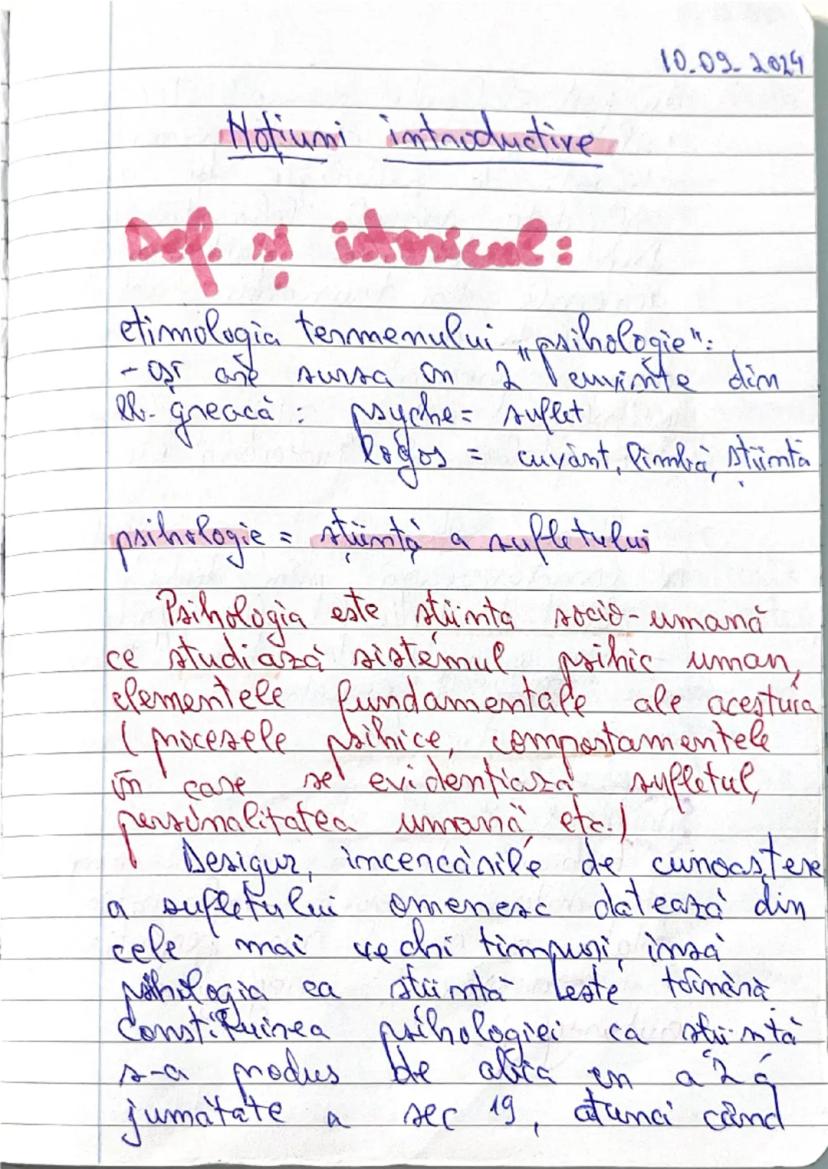 10.09.2024
Noțiuni introductive
Def. și istoricul:
etimologia termenului „psihologie":
- își are sursa în 2 cuvinte din
lb. greacă : psyche = suflet
logos = cuvânt, limbă, știință
psihologie = știință a sufletului
Psihologia este știința socio-umană
ce studiază sistemul psihic uman,
elementele fundamentale ale acestuia
(procesele psihice, comportamentele
în care se evidențiază sufletul,
personalitatea umană, etc.)
Desigur, incercările de cunoaștere
a sufletului omenesc datează din
cele mai vechi timpuri, însă
psihologia ca știință este tânără.
Constituirea psihologiei ca știință
s-a produs de abia în a 2 a
jumătate a sec 19, atunci când